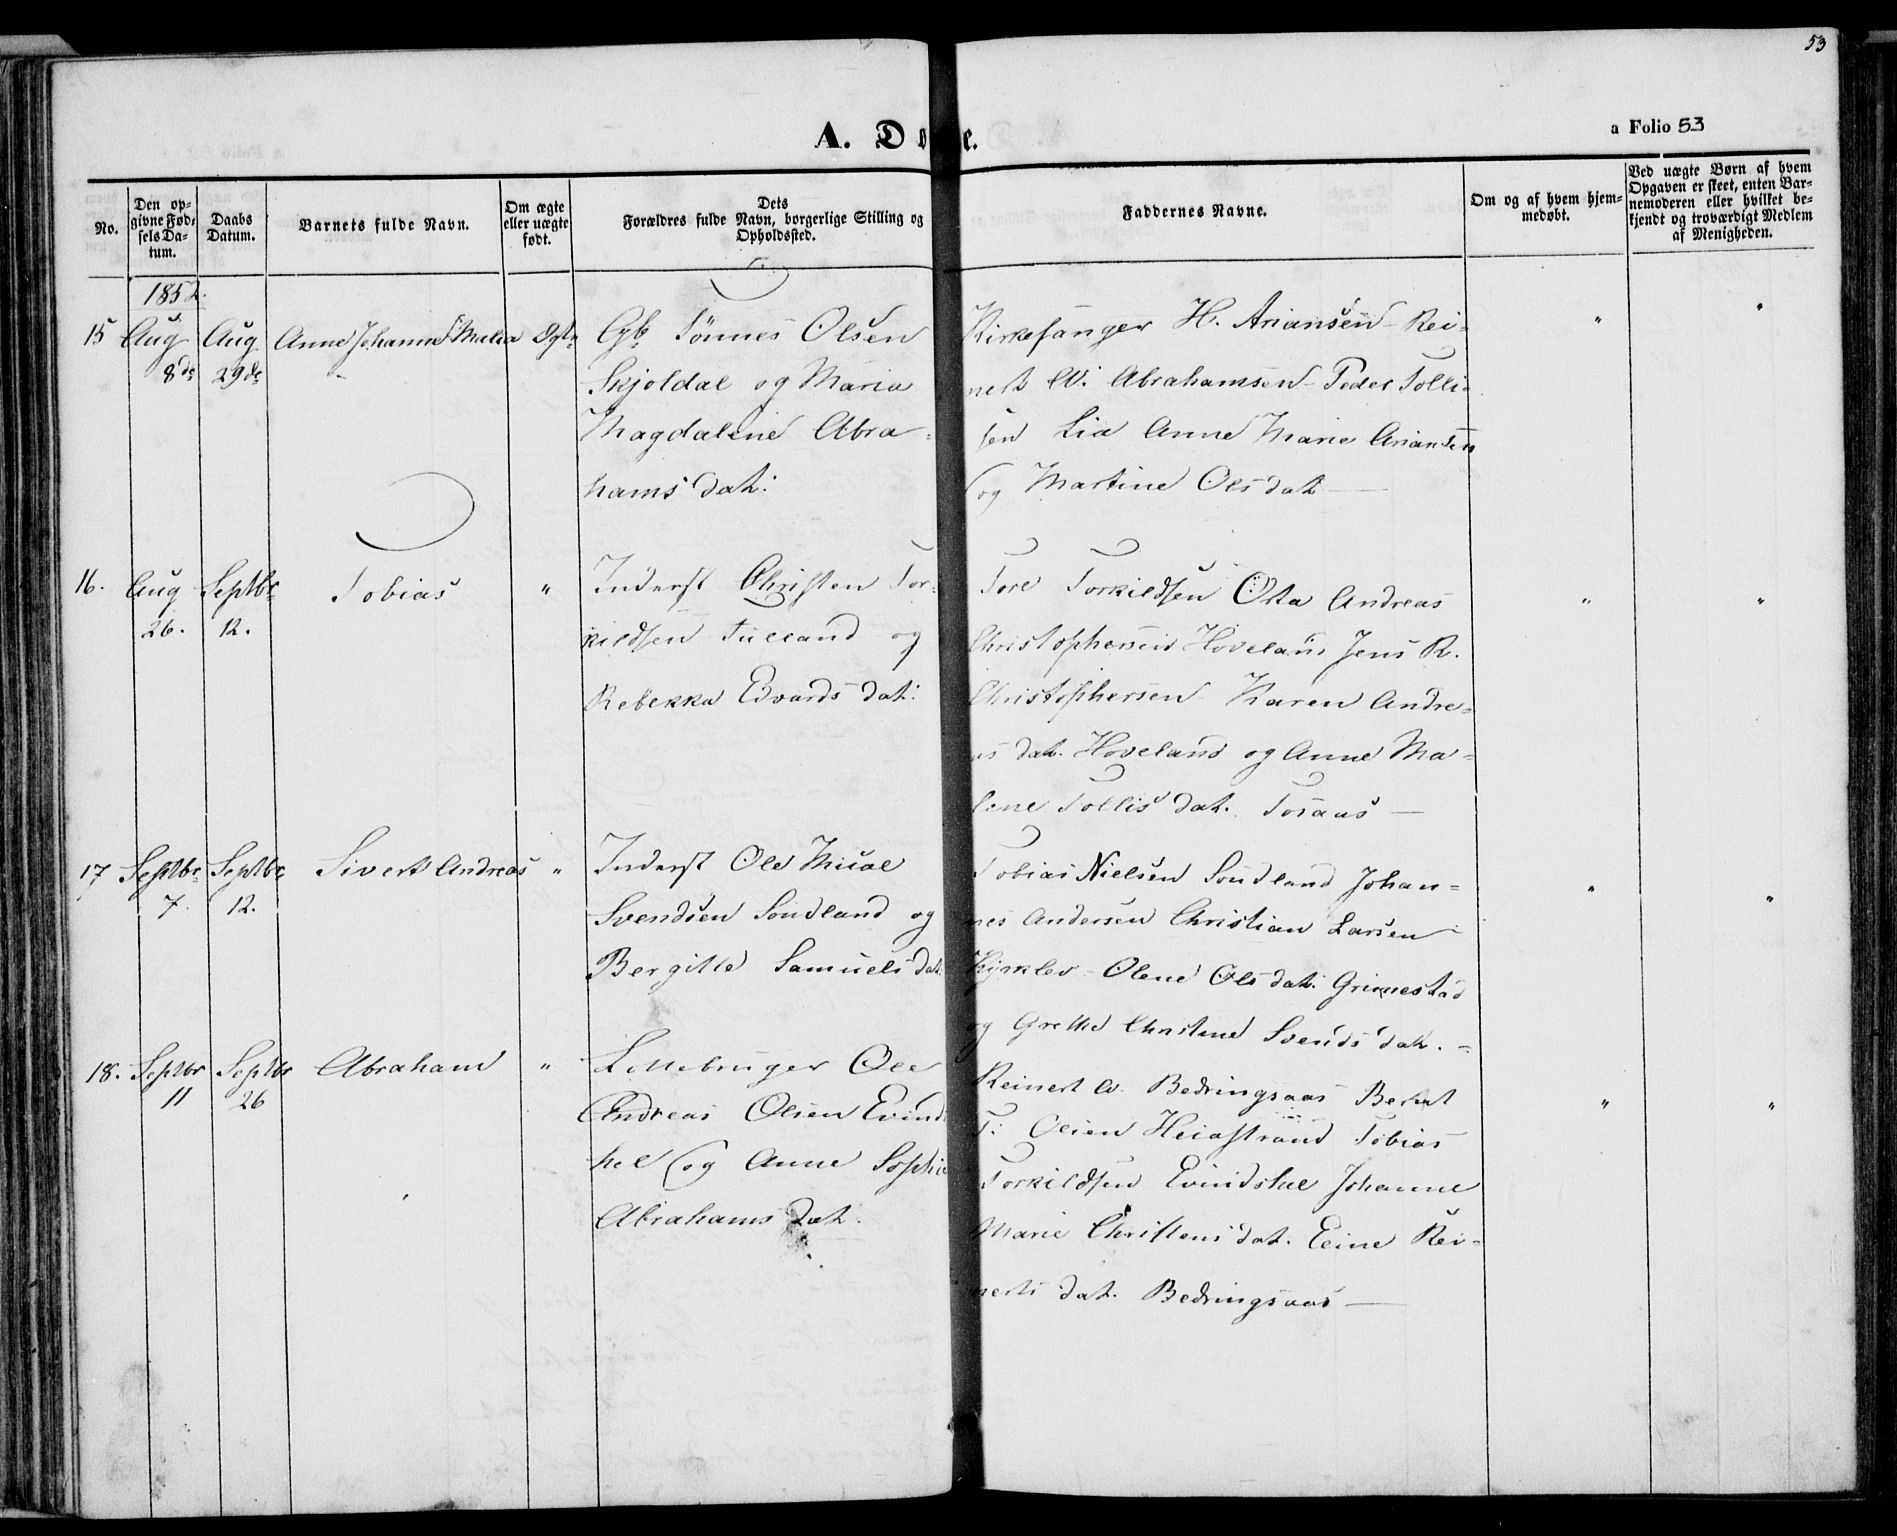 53
A. Døbte.
a Folio 53
No.
Den op-
givne Fød-
sels Da-
tum.
Daabs
Datum.
Barnets fulde Navn.
Om ægte
eller uægte
født.
Dets
Forældres fulde Navn, borgerlige Stilling og
Opholdssted.
Faddernes Navne.
Om og af hvem hjem-
medøbt.
Ved uægte Børn af hvem
Opgaven er skeet, enten Bar-
nemoderen eller hvilket be-
kjendt og troværdigt Medlem
af Menigheden.
1852.
15 Aug 8de Aug 29de Anne Johanne Malea Ægte
Gb. Tönnes Olsen
Skjoldal og Maria
Magdalene Abra-
hams dat:
Kirkesanger H. Ariansen - Rei-
nert Abrahamsen - Peder Tolli-
sen Lia Anne Marie Ariansen
og Martine Olsdat —
" "
16. Aug 26. Septbr 12. Tobias "
Inderst Christen Tor-
kildsen Tulland og
Rebekka Edvards dat:
Tore Torkildsen Osta Andreas
Christophersen Hoveland Jens R.
Christophersen Karen Andre-
as dat. Hoveland og Anne Ma-
lene Tollis dat. Tosaas —
" "
17 Septbr 7. Septbr 12. Sivert Andreas "
Inderst Ole Mical
Svendsen Sondland og
Bergitte Samuels dat
Tobias Nielsen Sondland Johan-
nes Andersen Christian Larsen
Olene Ols dat. Grimestad
og Grethe Christene Svends dat. -
" "
18. Septbr 11 Septbr 26 Abraham "
Ole
Andreas Olsen Evinds
hel og Anne Sophie
Abrahams dat.
Reinert A. Bedringsaas Bernt
T. Olsen Heiastrand Tobias
Torkildsen Evindshel Johanne
Marie Christens dat. Eline Rei-
nerts dat. Bedringsaas —
" "